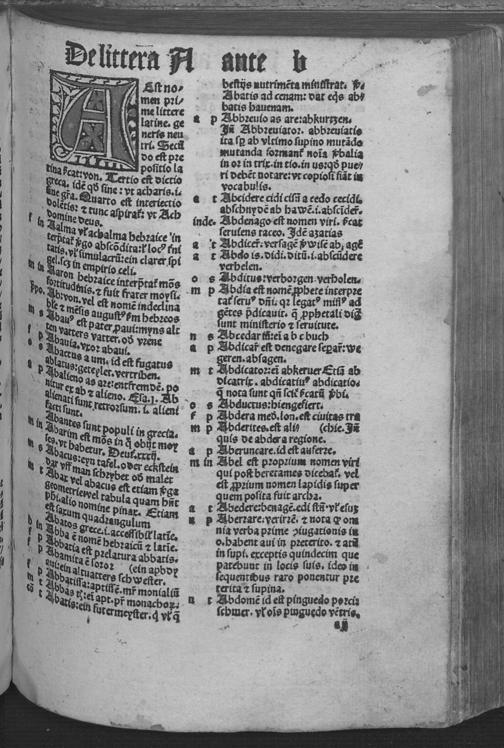 De littera A ante b
A Est no-
men pri-
me littere
latine. ge
neris neu
tri. Secūdo
do est pre
positio la
tina ſcat: von. Tertio est dictio
greca. idē qđ sine: vt acharis. i.
sine gra. Quarto est interiectio
dolētis: t tunc aspiraf: vt Ach
domine deus.
f in Aalma vl' acbalma hebraice in
terptat̄ ꝟgo abscōdita: vl' locꝰ sui
tatis. vl' simulacrū: ein clarer spi
gel. scz in empirio celi.
m in Aaron hebraice interptat̄ mōs
fortitudinis. t fuit frater moysi.
ppo. Ab: von. vel est nomen indeclina
bile t mēsis augustꝰ fm hebreos
m s Abauꝰ est pater. paui: myns alt
ten vatters vatter. od vrene
f p Abauia. vt or abaui.
o s Abactus a um. id est fugatus
ablatus: geteylet. vertriben.
a p Abalieno as are: entfremdē. po
nitur et ab t alieno. Esa. 1. Ab
alienati sunt retrorsum. i. alieni
facti sunt.
m in Abantes sunt populi in grecia.
m in Abarim est mōs in q̄ obijt moy
ses. vt habetur. Deuf. xxxij.
m s Abacus: eyn tafel. oder eckstein
dar vff man schrybet od malet
m t Abax vel abacus est etiam ꝟga
geometrie vel tabula quam hūt
phi. alio nomine pinax. Etiam
est saxum quadrangulum
Abatos grece. i. accessibil' latie.
Abba ē nomē hebraicū t latie.
f p Abbatia est prelatura abbatis.
f p Abamita ē soror (ein aphdy
auie: ein altuatters schwester.
f p Abbatissa: aptissē. mr̄ monialiū
m t Abbas tz: ei apt. pr̄ monachoꝝ.
cō t Abatis: ein futermeyster. q vl' q̄
bestijs nutrimēta ministrat. ꝟ.
Abatis ad cenam: dat eqs ab
batis bauenam.
a p Abbreuio as are: abkurtzen.
Jn Abbreuiator. abbreuiatis
ita sp ab vltimo supino mutādo
mutanda formant̄ noīa ꝟbalia
in or in trix. in tio. in usrqđ pueri
ri debēt notare: vt copiosi fiāt in
vocabulis.
a t Abcidere cidi cisū a cedo cecidi.
abschnydē ab hawē. i. abscidēf.
inde. Abdenago est nomen viri. ſcat
seruiens taceo. Jdē azatias
a t Abdicer̄: versagē ꝟwisē ab. agē
a t Abdo is. didi. ditū. i. abscūdere
verhelen.
o s Abditus: verborgen verholen.
m p Abdia est nomē ꝓphete interpre
tat̄ seruꝰ dn̄i. qz legatꝰ misꝰ ad
gētes ꝓdicauit. q̄ ꝓphetali diḡ
sunt ministerio t seruitute.
n s Abecedariū: ei a b c buch
a p Abdicar̄ est denegare sepan: we
geren. absagen.
m t Abdicator: ei abkerer Etiā ab
dicatrix. abdicatiuꝰ abdicatio.
q̄ nota sunt qn̄ scit' ſcatū ꝟbi.
o s Abductus: hiengefiert.
f p Abdera med. lon. est ciuitas tra
m p Abderites. est alis (chie. Jn
quis de abdera regione.
a p Aberuncare. id est auferre.
m in Abel est proprium nomen viri
qui post beretames dicebaf. vel
est ꝓprium nomen lapidis super
quem posita fuit archa.
a t Abedere: benagē. edi estū vl' esuꝫ
n p Aberrare. ꝟirrē. t nota q omnia
nia verba prime ꝓiugationis in
o. habent aui in preterito. t atū
in supi. exceptis quindecim que
patebunt in locis suis. ideo in
sequentibus raro ponentur pre
terita t supina.
n t Abdomē id est pinguedo porci:
schmer. vl' oīs pinguedo vētris.
a ij